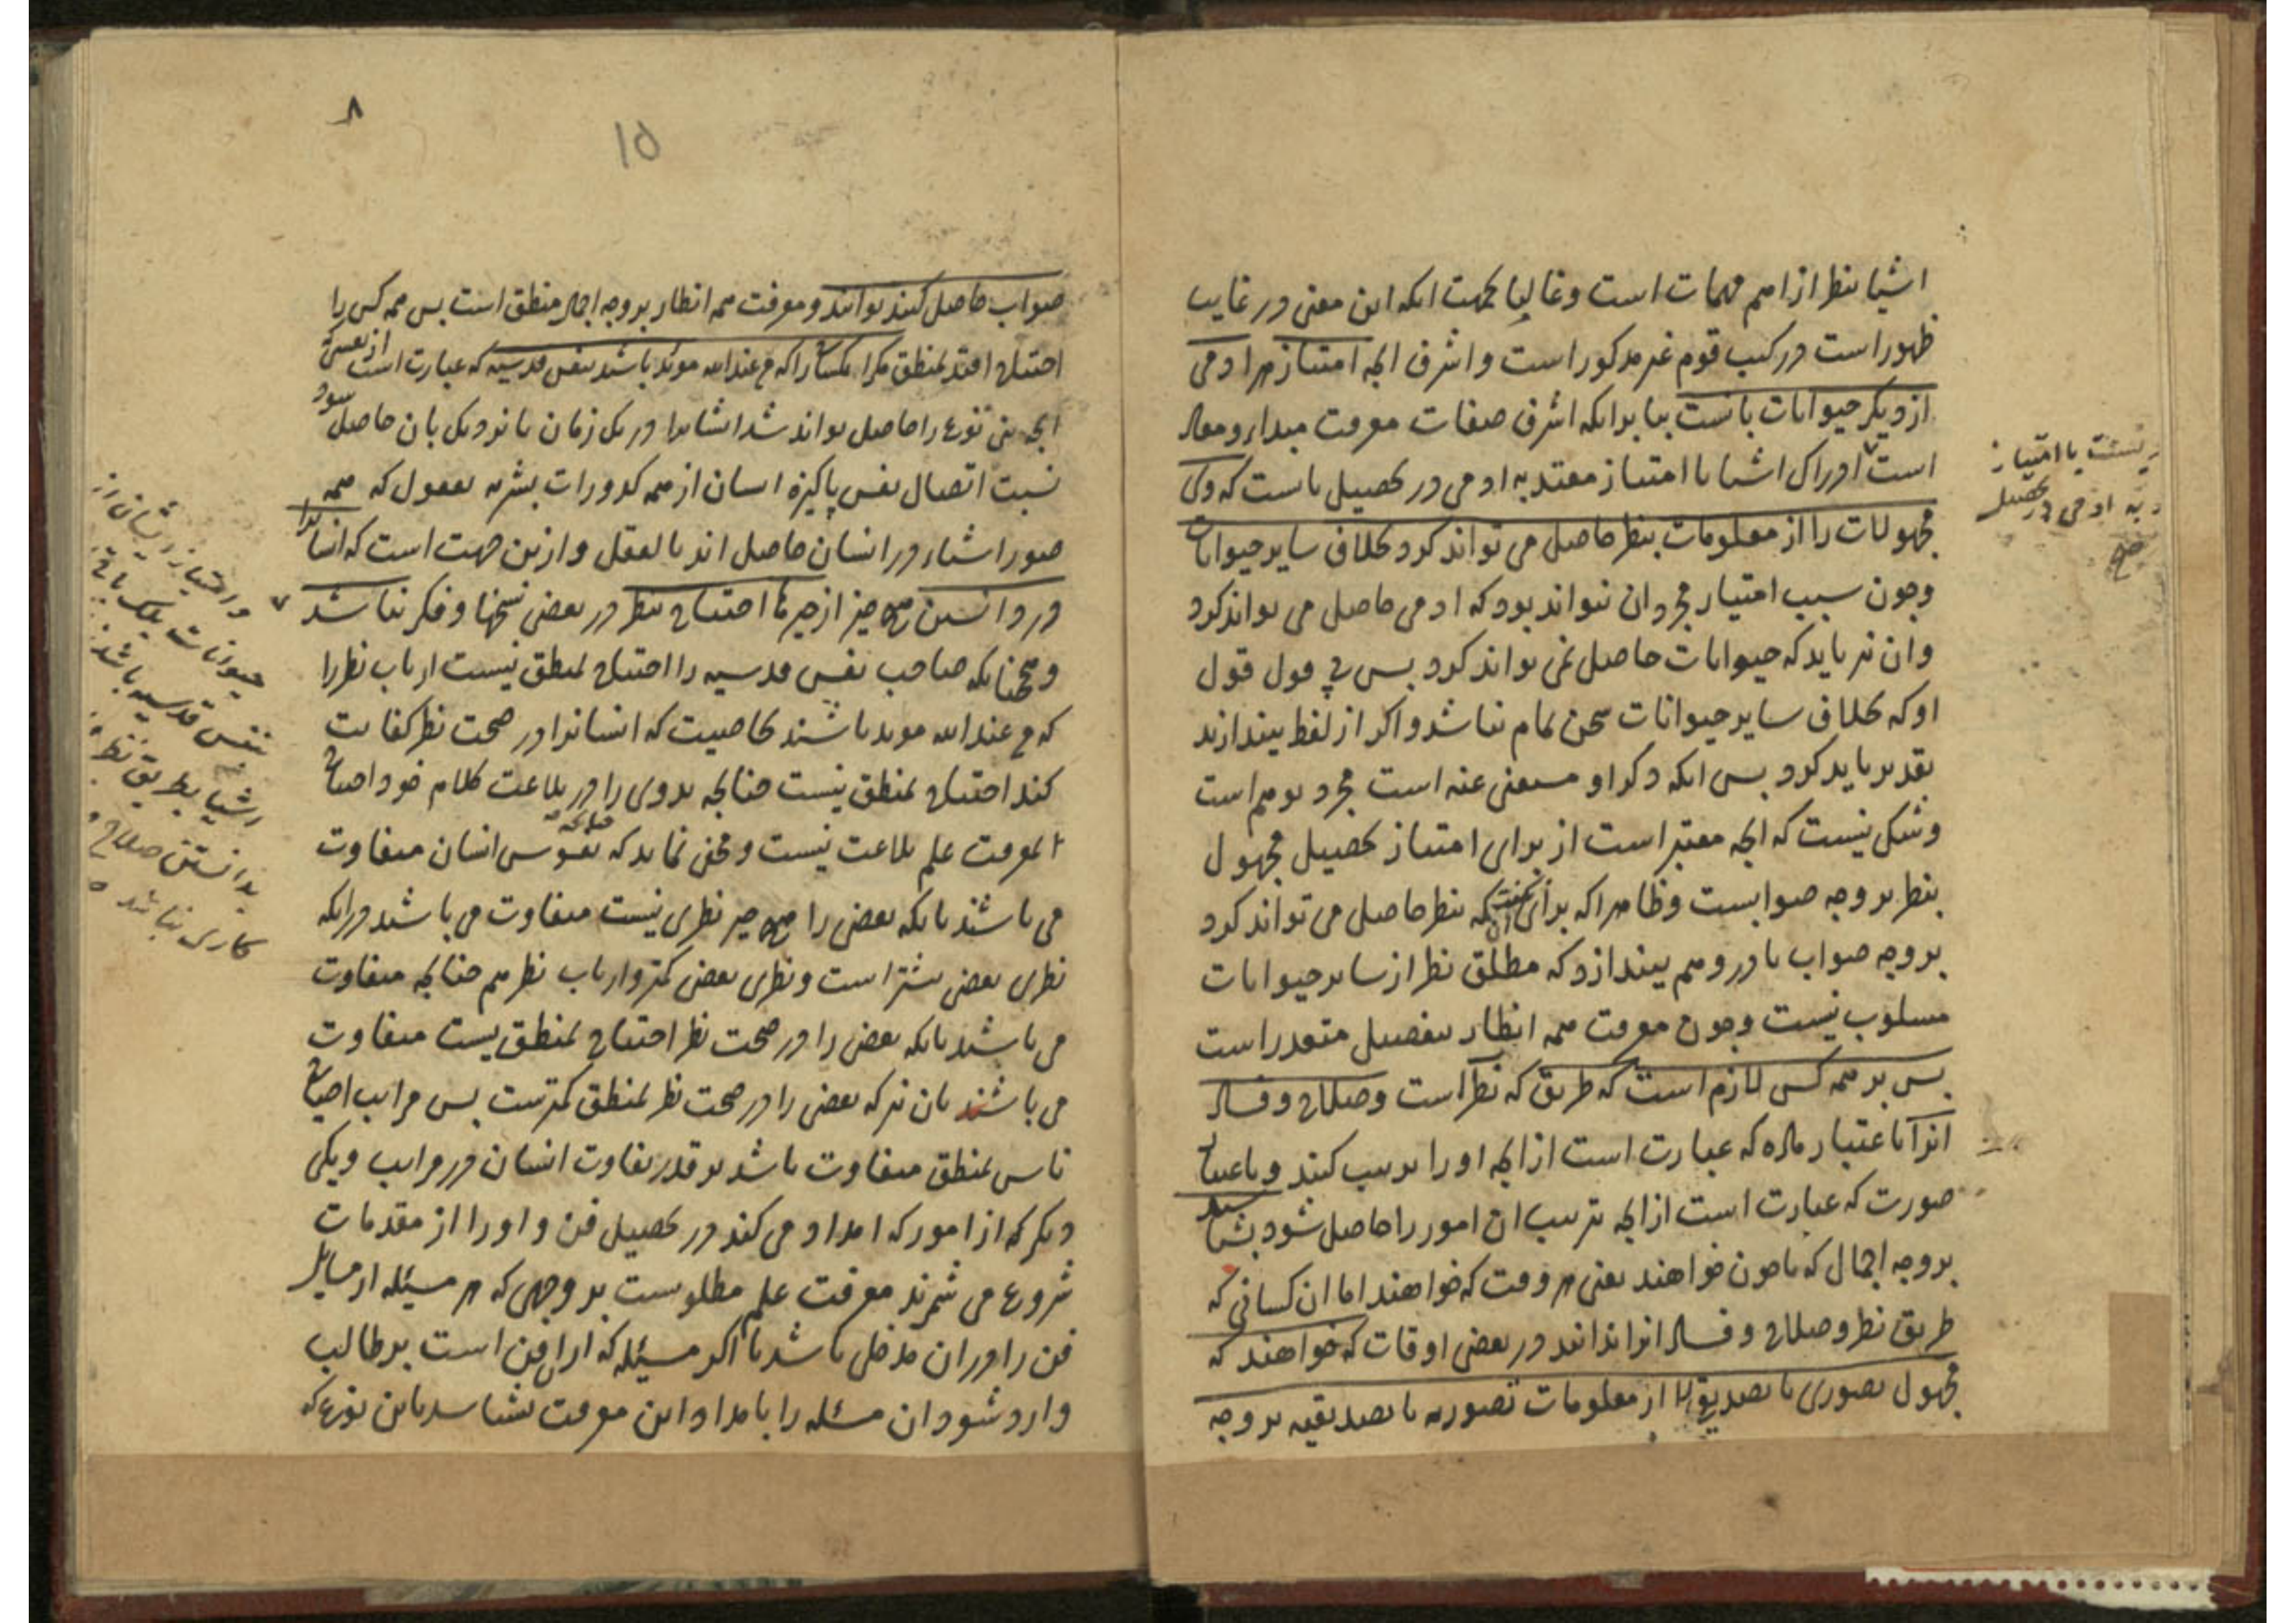 اشیا بنظر از اهم مهمات است و غالبا بجهت انکه این معنی در غایت
ظهور است در کتب قوم غیر مذکور است و اشرف انچه امتیاز هر ادمی
از دیگر حیوانات بانست بنا بر انکه اشرف صفات معرفت مبداء و معاد
است ادراک اشیا با امتیاز معتد به ادمی در تحصیل باست که وی
مجهولات را از معلومات بنظر حاصل می تواند کرد بخلاف سایر حیوانات
وچون سبب امتیاز مجرد ان نتواند بود که ادمی حاصل می تواند کرد
وان نیز باید که حیوانات حاصل نمی تواند کرد پس در قول
او که بخلاف سایر حیوانات سخن تمام نباشد واکر از لفظ بیندازند
تقدیر باید کرد پس انکه ذکر او مستغنی عنه است مجرد توهم است
وشکی نیست که انچه معتبر است از برای امتیاز تحصیل مجهول
بنظر بر وجه صوابست وظاهرا که برای انکه بنظر حاصل می تواند کرد
بر وجه صواب تا در وهم بیندازد که مطلق نظر از سایر حیوانات
مسلوب نیست وچون معرفت همه انظار بتفصیل متعذر است
پس بر همه کس لازم است که طریق که نظر است وصلاح وفساد
انرا باعتبار ماده که عبارت است از انچه او را ترتیب کنند وباعتبار
صورت که عبارت است از انچه ترتیب ان امور را حاصل شود بشناسد
بر وجه اجمال که تا چون خواهند یعنی هر وقت که خواهند اما ان کسانی که
طریق نظر وصلاح وفساد انرا ندانند در بعضی اوقات که خواهند که
مجهول تصوری یا تصدیقی را از معلومات تصوریه یا تصدیقیه بر وجه
نیست با امتیاز
به ادمی در تحصیل
صح
۸
۱۵
صواب حاصل کنند توانند ومعرفت همه انظار بر وجه اجمال منطق است پس همه کس را
احتیاج افتد بمنطق مکر کسانرا که من عند الله موید باشند بنفس قدسیه که عبارت است از نفسی که
انچه بنی نوع را حاصل تواند شد ایشانرا در یک زمان یا نزدیک بان حاصل شود
نسبت اتصال نفس پاکیزه ایشان از همه کدورات بشریه بعقول که همه
صور اشیاء در ایشان حاصل اند بالفعل وازین جهت است که ایشانرا
در دانستن هیچ چیز از چیزها احتیاج بنظر در بعضی نسخها وفکر نباشد
وهمچنانکه صاحب نفس قدسیه را احتیاج بمنطق نیست ارباب نظر را
که من عند الله موید باشند بخاصیت که ایشانرا در صحت نظر کفایت
کند احتیاج بمنطق نیست چنانچه بدوی را در بلاغت کلام خود احتیاج
بمعرفت علم بلاغت نیست ومخفی نماند که نفوس انسان متفاوت
می باشند بانکه بعضی را هیچ چیز نظری نیست متفاوت می باشند در انکه
نظری بعضی بیشتر است ونظری بعضی کمتر وارباب نظر هم چنانچه متفاوت
می باشند بانکه بعضی را در صحت نظر احتیاج بمنطق نیست متفاوت
می باشند بان نیز که بعضی را در صحت نظر بمنطق کمترست پس مراتب احتیاج
ناس بمنطق متفاوت باشد بر قدر تفاوت انسان در مراتب ویکی
دیکر که از امور که امداد می کند در تحصیل فن و او را از مقدمات
شروع می شمرند معرفت علم مطلوبست بر وجهی که هر مسئله از مسایل
فن را در ان مدخل باشد تا اکر مسئله که از ان فن است بر طالب
وارد شود ان مسئله را بامداد این معرفت بشناسد باین نوع که
وامتیاز ایشان از
حیوانات
نفس قدسیه باشد
اشیا بطریق نظر
بدانستن صلاح
کاری نباشد